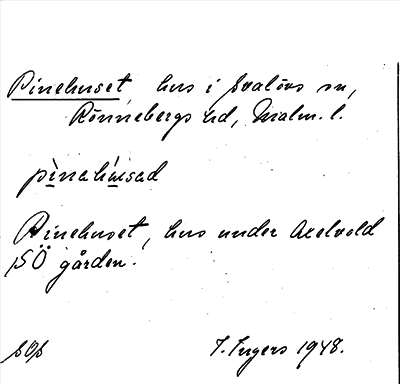 Pinehuset, hus i Svalövs sn,
Rönnebergs hd, Malm. l.
pìnahùsad
Pinehuset, hus under Axelvold
SÖ gården.
sOp
I. Ingers 1948.